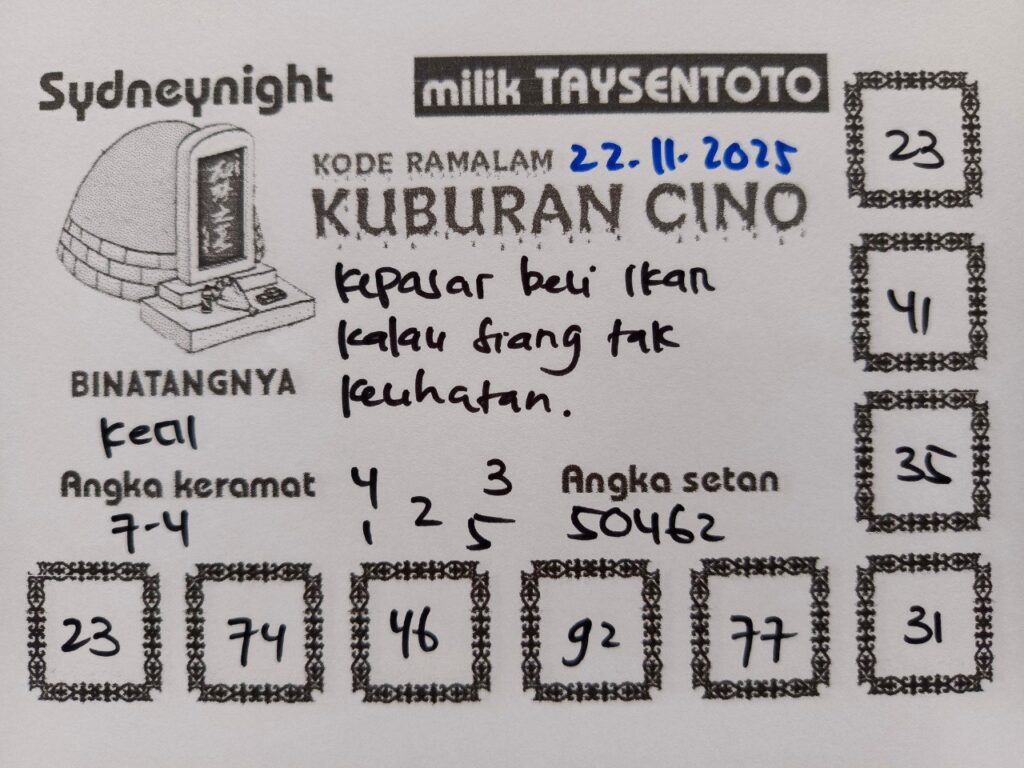 Sydneynight
milik TAYSENTOTO
KODE RAMALAM 22.11.2025
KUBURAN CINO
kepasar beli ikan
kalau siang tak
kelihatan.
BINATANGNYA
kecil
Angka keramat
7-4
4 3
2
1 5
Angka setan
50462
23
41
35
31
23 74 46 92 77